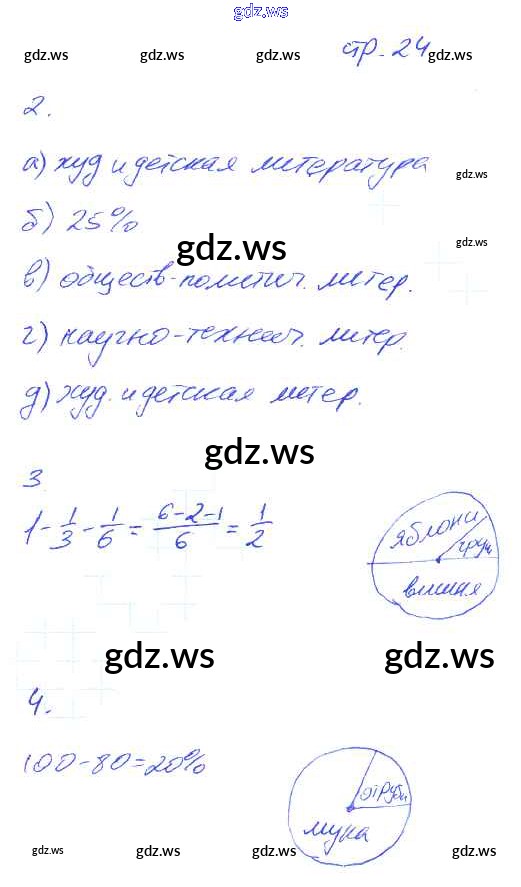 gdz.ws
стр. 24
gdz.ws gdz.ws gdz.ws gdz.ws
2.
а) худ и детская литература
gdz.ws
б) 25%
gdz.ws gdz.ws
в) обществ-политич. литер.
г) научно-технич. литер.
д) худ. и детская литер.
gdz.ws gdz.ws
3
1 - 1/3 - 1/6 = (6-2-1)/6 = 1/2
яблони
груши
вишня
gdz.ws gdz.ws
4.
100-80=20%
отруби
мука
gdz.ws gdz.ws gdz.ws gdz.ws